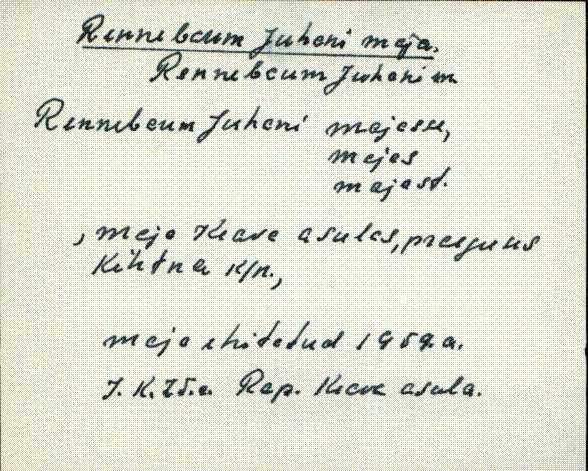 Rennebaum Juhani maja.
Rennebaum Juhani m
Rennebaum Juhani majasse,
majas
majast.
, maja Keava asulas, praegune
Kehtna k/n.,
maja ehitatud 1959.a.
J. K. 75.a Rap. Keava asula.